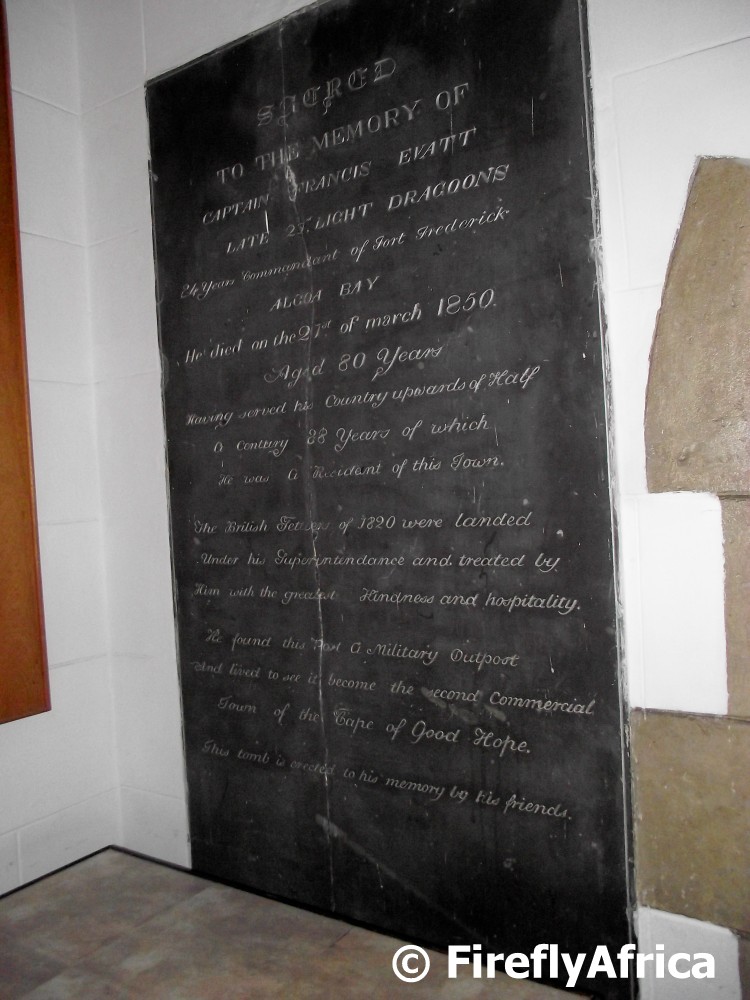 SACRED
TO THE MEMORY OF
CAPTAIN FRANCIS EVATT
LATE 21st LIGHT DRAGOONS
24 Years Commandant of Fort Frederick
ALGOA BAY
He died on the 21st of march 1850.
Aged 80 Years
Having served his Country upwards of Half
a Century 28 Years of which
He was a Resident of this Town.
The British Settlers of 1820 were landed
Under his Superintendance and treated by
Him with the greatest Kindness and hospitality.
He found this Post A Military Outpost
and lived to see it become the second Commercial
Town of the Cape of Good Hope.
This tomb is erected to his memory by his friends.
© FireflyAfrica